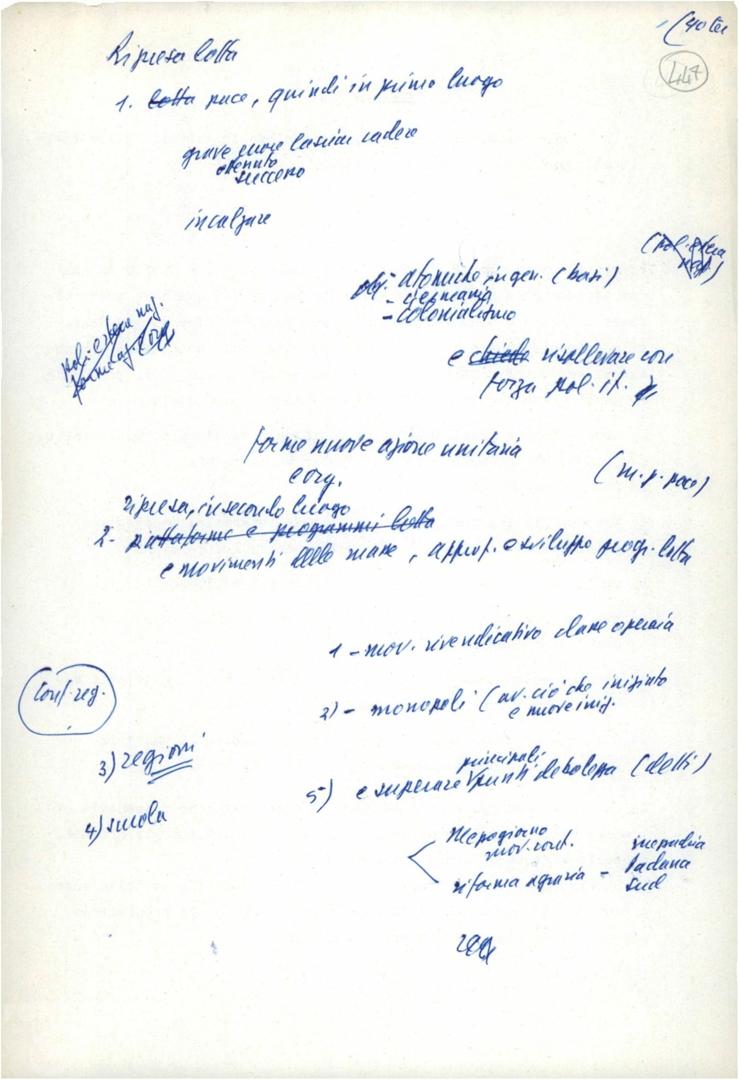 (40 ter
447
Ripresa lotta
1. lotta pace, quindi in primo luogo
grave errore lasciar cadere
ottenuto
successo
incalzare
(pol. estera
ob: atomiche in gen. (basi)
- Germania
- colonialismo
pol. estera naz.
e chiede risollevare con
forza pol. it.
forme nuove azione unitaria
e org.
(m. p. pace)
ripresa, in secondo luogo
2- piattaforme e programmi lotta
e movimenti delle masse, approf. e sviluppo progr. lotta
1 - mov. rivendicativo classe operaia
Conf. reg.
2) - monopoli (av. ciò che iniziato
e nuove iniz.
3) regioni
principali
5) e superare punti debolezza (detti)
4) scuola
Mezzogiorno
mov. cont.
mezzadria
riforma agraria - Padana
Sud